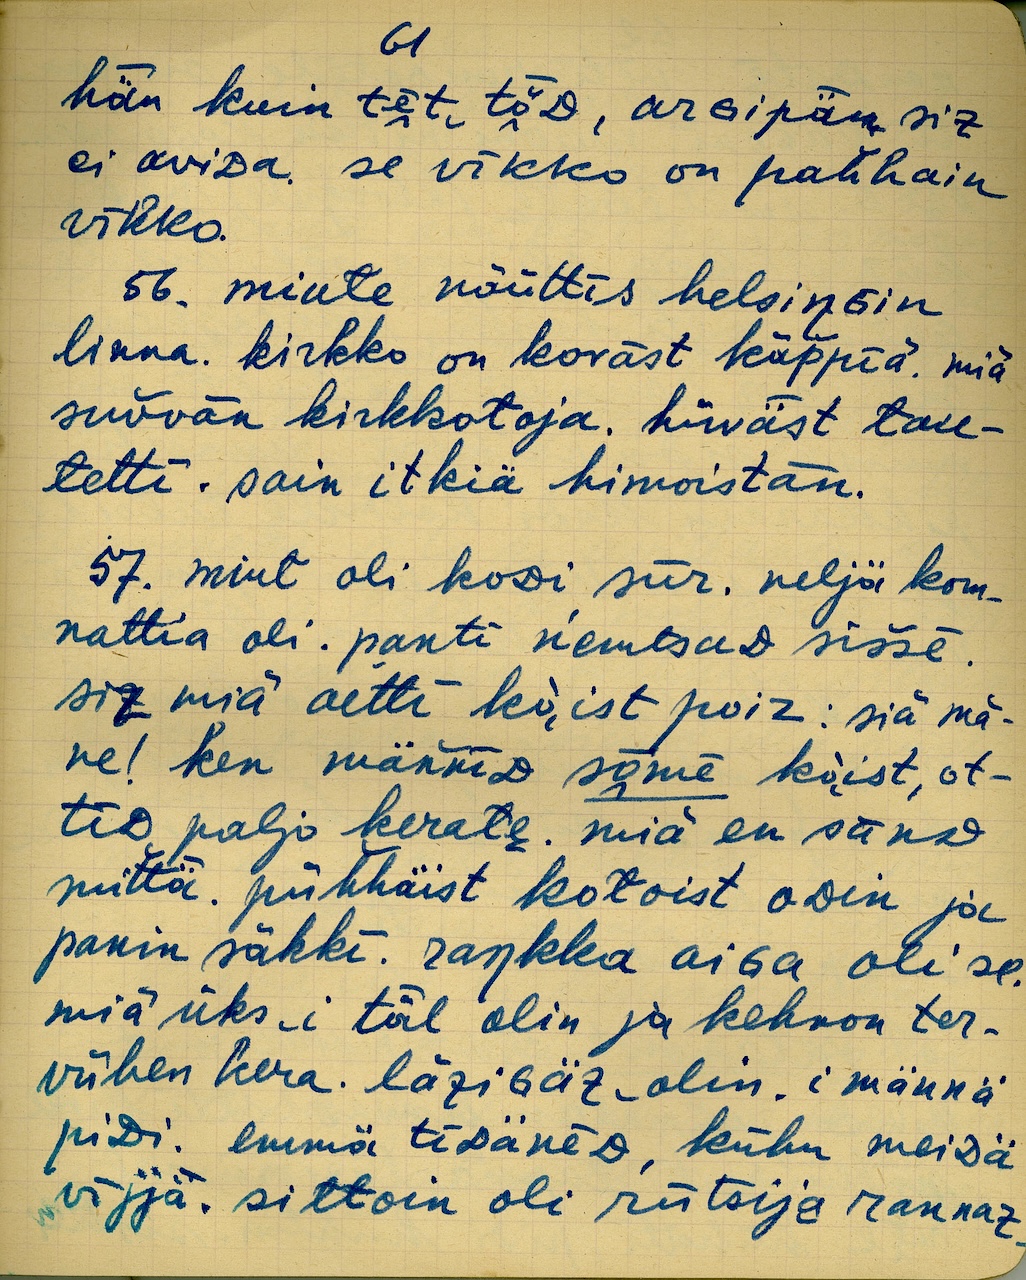 61
hǟn kuin tē̮t, tȫ̮ᴅ, arɢipǟn siz
ei aviᴅa. se vīkko on pahhain
vīkko.
56. miute nöüttīs helsiŋɢin
linna. kirkko on kovast käppīä. miä
suvvān kirkkotoja. hüväst tau-
tettī. sain itkiä himoistān.
57. miut oli koᴅi sūr. neljä kom-
nattia oli. pantī ńemtsaᴅ sissē.
siz miä aettī koist poiz: siä mä-
ne! ken männīᴅ sōmē koist, ot-
tīᴅ paljo kerate. miä en sānᴅ
mittä. pühhäist kotoist oᴅin ja
panin säkkī. raŋkka aiɢa oli se.
miä üks i tǟl olin ja kehnon ter-
vühen kera. läziɢäz olin. i männä
piᴅi. emmä tīᴅänēᴅ, kūhu meiᴅä
vījjǟ. sittoin oli rütsije rannaz